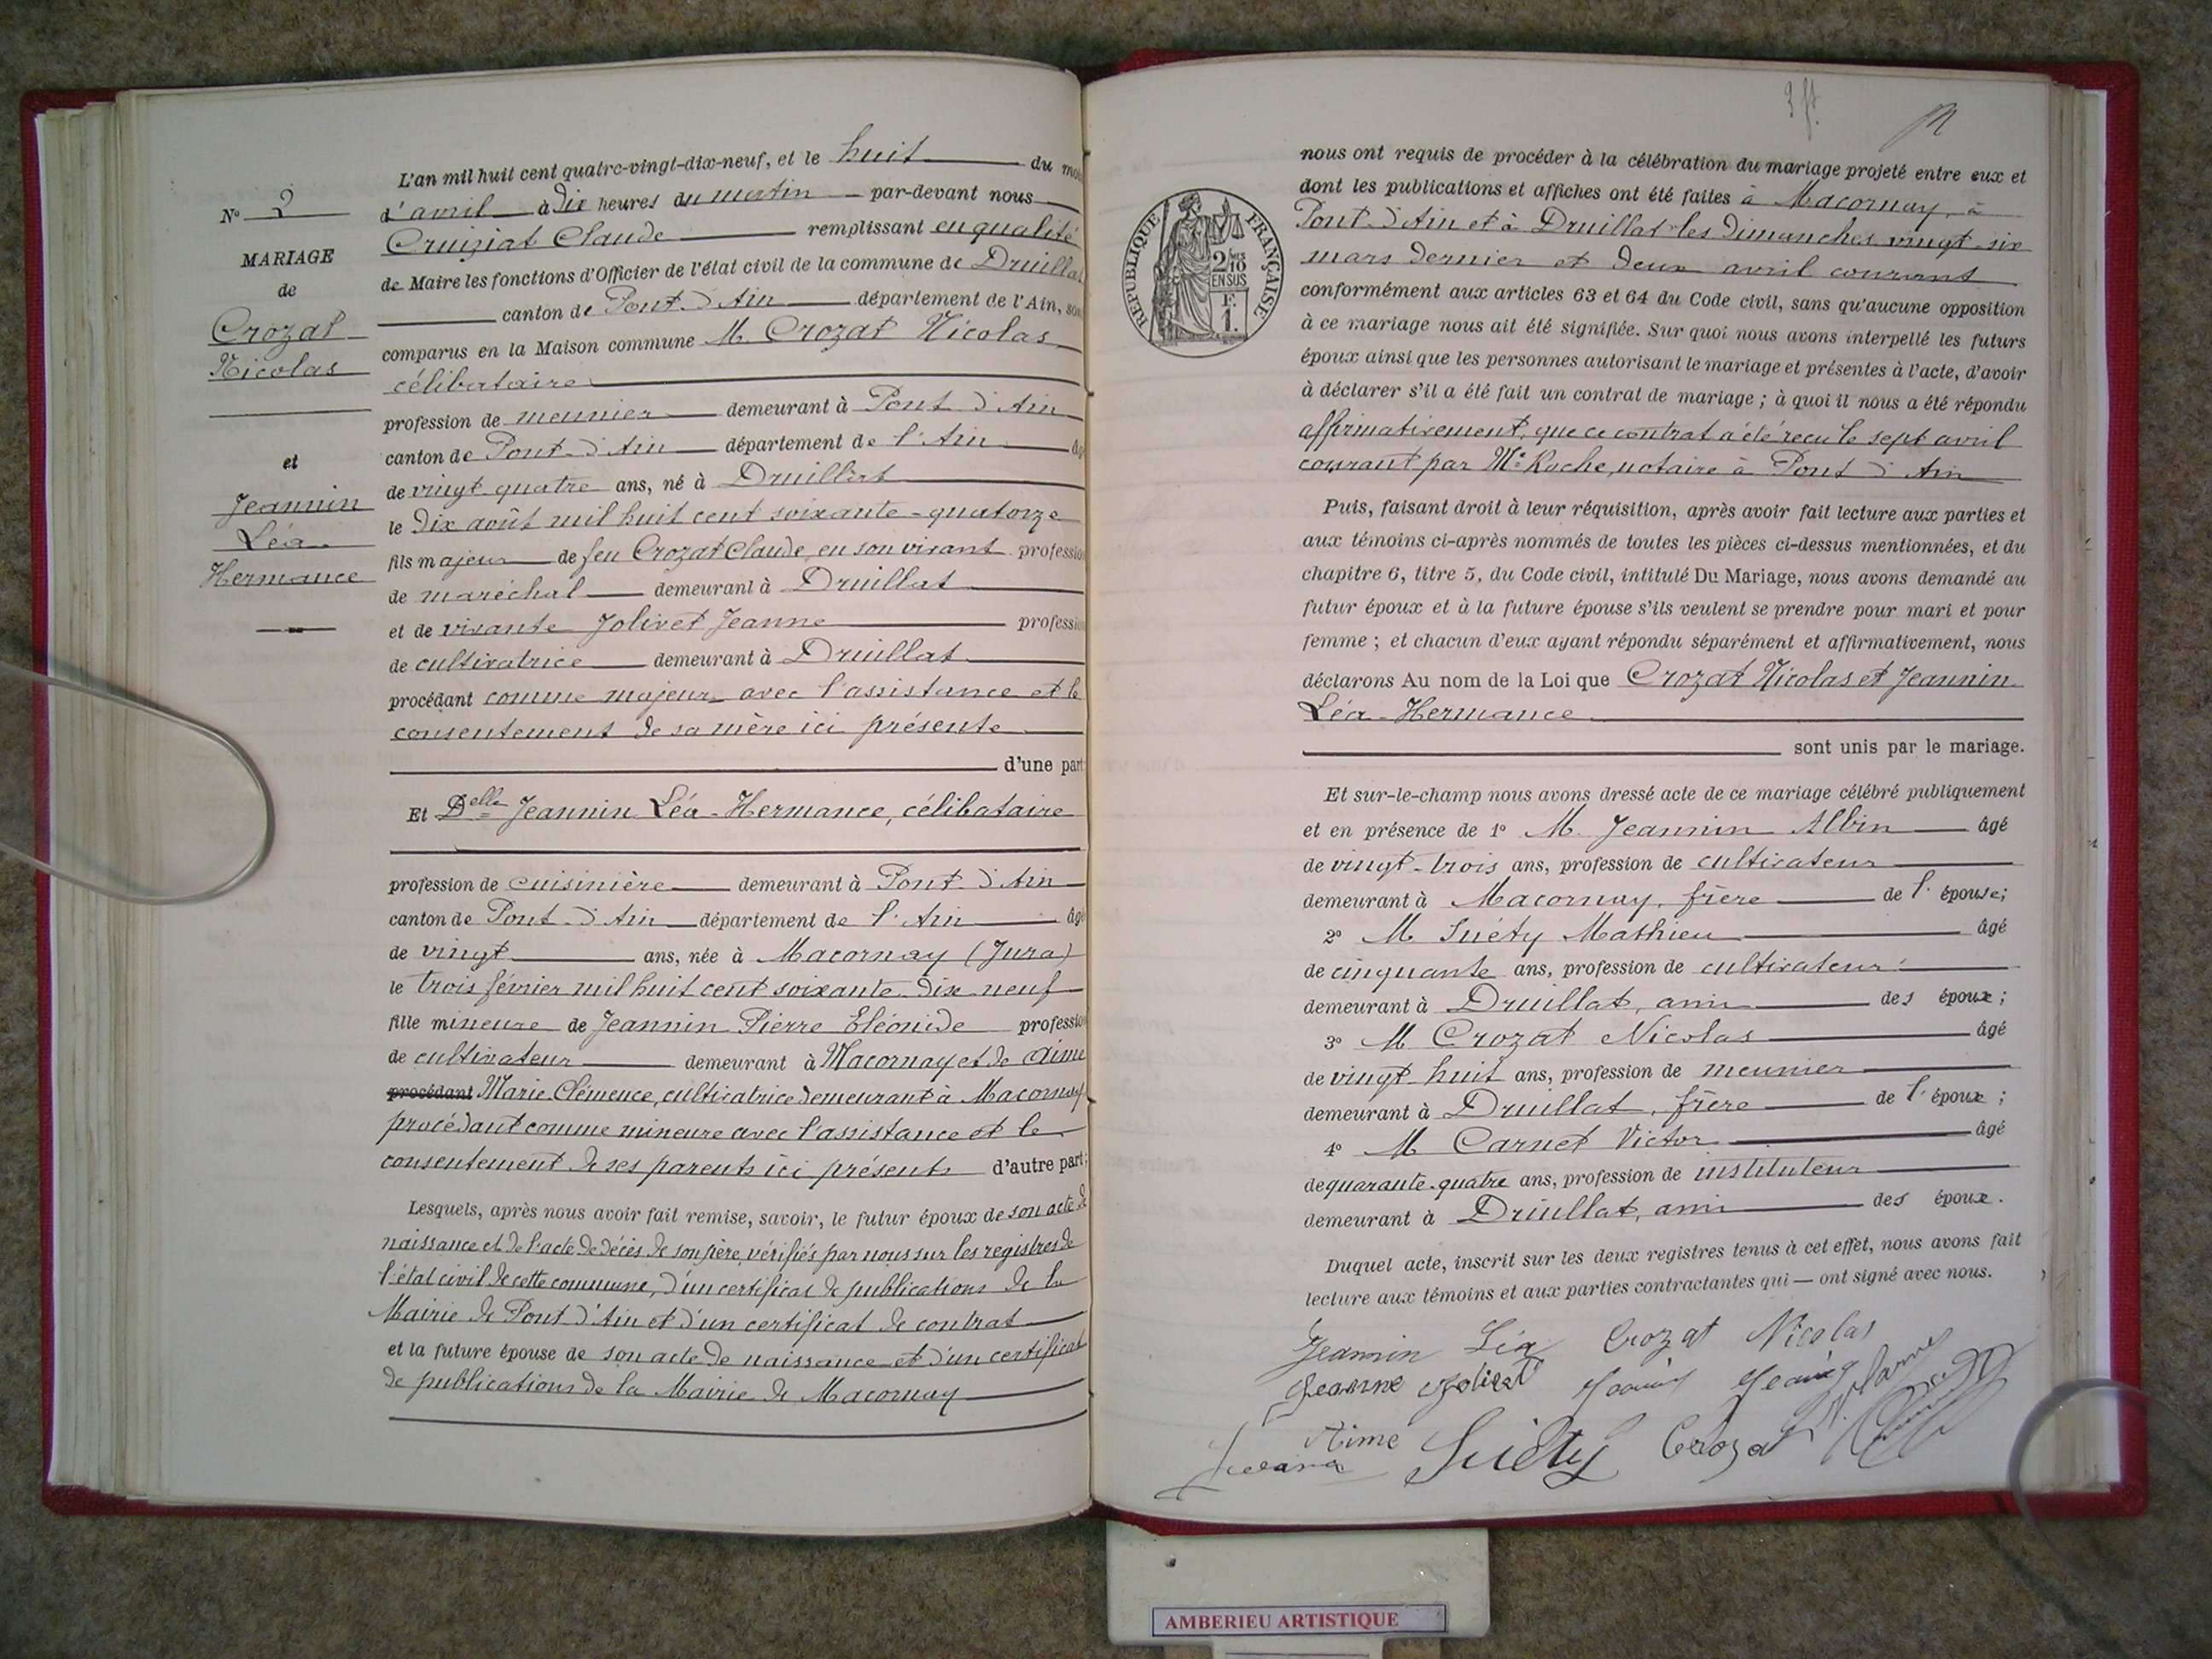 N° 2
MARIAGE
de
Crozat
Nicolas
et
Jeannin
Léa
Hermance
L'an mil huit cent quatre-vingt-dix-neuf, et le huit du mois
d'avril à dix heures du matin par-devant nous
Cruiziat Claude remplissant en qualité
de Maire les fonctions d'Officier de l'état civil de la commune de Druillat
canton de Pont d'Ain département de l'Ain, son
comparus en la Maison commune M. Crozat Nicolas
célibataire
profession de meunier demeurant à Pont d'Ain
canton de Pont d'Ain département de l'Ain âg
de vingt quatre ans, né à Druillat
le dix août mil huit cent soixante-quatorze
fils majeur de feu Crozat Claude, en son vivant profession
de maréchal demeurant à Druillat
et de vivante Jolivet Jeanne profession
de cultivatrice demeurant à Druillat
procédant comme majeur avec l'assistance et le
consentement de sa mère ici présente
d'une part
Et Delle Jeannin Léa-Hermance, célibataire
profession de cuisinière demeurant à Pont d'Ain
canton de Pont d'Ain département de l'Ain âgé
de vingt ans, née à Macornay (Jura)
le trois février mil huit cent soixante dix neuf
fille mineure de Jeannin Pierre Eléonide profession
de cultivateur demeurant à Macornay et de Aimé
procédant Marie Clémence, cultivatrice demeurant à Macornay
procédant comme mineure avec l'assistance et le
consentement de ses parents ici présents d'autre part;
Lesquels, après nous avoir fait remise, savoir, le futur époux de son acte de
naissance et de l'acte de décès de son père, vérifiés par nous sur les registres de
l'état civil de cette commune, d'un certificat de publications de la
Mairie de Pont d'Ain et d'un certificat de contrat
et la future épouse de son acte de naissance et d'un certificat
de publications de la Mairie de Macornay
RÉPUBLIQUE FRANÇAISE
2/10
EN SUS
F.
1.
nous ont requis de procéder à la célébration du mariage projeté entre eux et
dont les publications et affiches ont été faites à Macornay, à
Pont-d'Ain et à Druillat les dimanches vingt-six
mars dernier et deux avril courant
conformément aux articles 63 et 64 du Code civil, sans qu'aucune opposition
à ce mariage nous ait été signifiée. Sur quoi nous avons interpellé les futurs
époux ainsi que les personnes autorisant le mariage et présentes à l'acte, d'avoir
à déclarer s'il a été fait un contrat de mariage ; à quoi il nous a été répondu
affirmativement, que ce contrat a été reçu le sept avril
courant par Me Roche, notaire à Pont d'Ain
Puis, faisant droit à leur réquisition, après avoir fait lecture aux parties et
aux témoins ci-après nommés de toutes les pièces ci-dessus mentionnées, et du
chapitre 6, titre 5, du Code civil, intitulé Du Mariage, nous avons demandé au
futur époux et à la future épouse s'ils veulent se prendre pour mari et pour
femme ; et chacun d'eux ayant répondu séparément et affirmativement, nous
déclarons Au nom de la Loi que Crozat Nicolas et Jeannin
Léa-Hermance
sont unis par le mariage.
Et sur-le-champ nous avons dressé acte de ce mariage célébré publiquement
et en présence de 1° M. Jeannin Albin âgé
de vingt-trois ans, profession de cultivateur
demeurant à Macornay, frère de l'épouse;
2° M. Suéty Mathieu âgé
de cinquante ans, profession de cultivateur
demeurant à Druillat, ami des époux ;
3° M Crozat Nicolas âgé
de vingt-huit ans, profession de meunier
demeurant à Druillat, frère de l'époux ;
4° M Carnet Victor âgé
de quarante-quatre ans, profession de instituteur
demeurant à Druillat, ami des époux.
Duquel acte, inscrit sur les deux registres tenus à cet effet, nous avons fait
lecture aux témoins et aux parties contractantes qui — ont signé avec nous.
Jeannin Léa Crozat Nicolas
Jeanne Jolivet
Aimé Suéty Crozat
AMBERIEU ARTISTIQUE